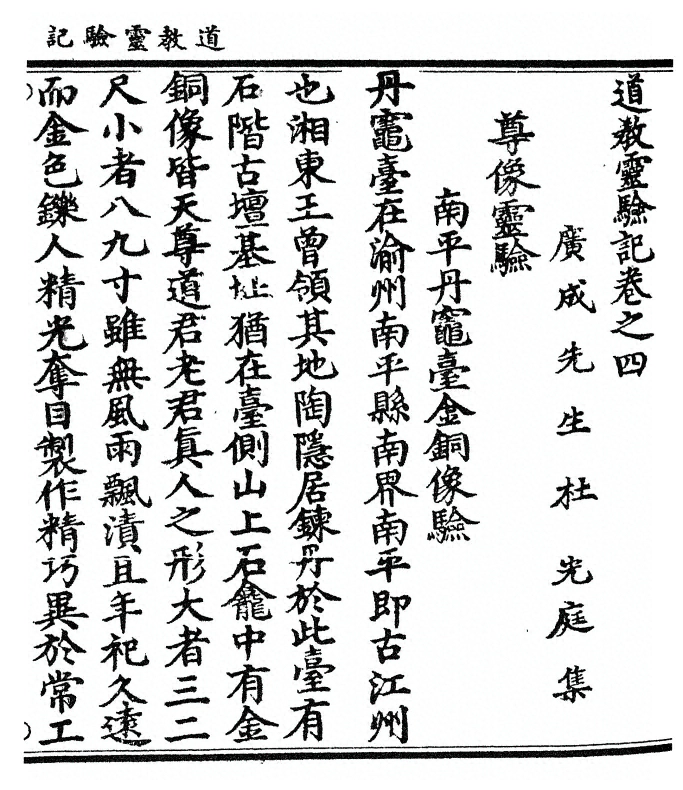 道教靈驗記
道教靈驗記卷之四
廣成先生杜光庭集
尊像靈驗
南平丹竈臺金銅像驗
丹竈臺在渝州南平縣南界南平即古江州
也湘東王曾領其地陶隱居鍊丹於此臺有
石階古壇基址猶在臺側山上石龕中有金
銅像皆天尊道君老君真人之形大者三二
尺小者八九寸雖無風雨飄漬且年祀久遠
而金色鑠人精光奪目製作精巧異於常工